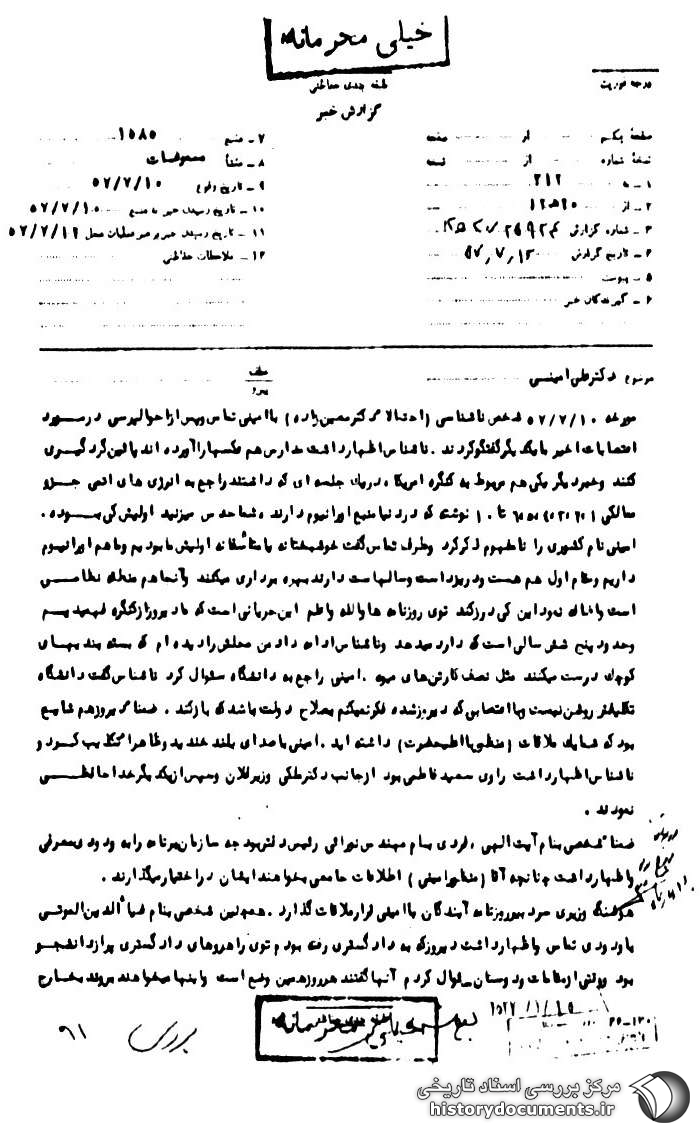 خیلی محرمانه
طبقه بندی حفاظتی
درجه فوریت
گزارش خبر
صفحه یکم از صفحه
نسخه شماره از نسخه
۱ - به ۳۱۲
۲ - از ۱۲ ﻫ ۲۰
۳ - شماره گزارش
۴ - تاریخ گزارش ۵۷/۷/۱۲
۵ - پیوست
۶ - گیرندگان خبر
۷ - منبع ۱۵۸۵
۸ - منشأ مسموعات
۹ - تاریخ وقوع ۵۷/۷/۱۰
۱۰ - تاریخ رسیدن خبر به منبع ۵۷/۷/۱۰
۱۱ - تاریخ رسیدن خبر به رهبر عملیات محل ۵۷/۷/۱۲
۱۲ - ملاحظات حفاظتی
موضوع دکتر علی امینی
عطف
پیرو
مورخه ۵۷/۷/۱۰ شخص ناشناسی (احتمالا دکتر معین زاده) با امینی تماس و پس از احوالپرسی در مورد
اعتصابات اخیر با یکدیگر گفتگو کردند . ناشناس اظهار داشت مدارس هم عکسها را آورده اند پائین گرد گیری
کنند و خبر دیگر یکی هم مربوط به کنگره امریکا ، در یک جلسه ای که داشتند راجع به انرژی های اتمی جزو
ممالکی تا ۱۰ نوشته که در دنیا منبع اورانیوم دارند ، شما حدس میزنید اولیش کی بوده .
امینی نام کشوری را نامفهوم ذکر کرد و طرف تماس گفت خوشبختانه یا متأسفانه اولیش ما بودیم و ما هم اورانیوم
داریم و مقام اول هم هست و در یزد است و سالهاست دارند بهره برداری میکنند و آنجا هم منطقه نظامی
است والله نمود این کی درز کند توی روزنامه ها والله واعلم این جریانی است که ما دیروز از کنگره فهمیدیم
وحدود پنج شش سالی است که دارد میدهد و ناشناس ادامه داد من محلش را دیده ام که بسته بندیهای
کوچک درست میکنند مثل نصف کارتن های میوه . امینی راجع به دانشگاه سئوال کرد ناشناس گفت دانشگاه
تکلیفش روشن نیست و با اعتصابی که دیروز شده فکر نمیکنم بصلاح دولت باشد که باز کند . ضمنا دیروز هم شایع
بود که شما یک ملاقات (منظور با اعلیحضرت) داشته اید . امینی با صدای بلند خندید و ظاهرا تکذیب کرد و
ناشناس اظهار داشت راوی سعید فاطمی بود از جانب دکتر ملکی وزیر فلان و سپس از یکدیگر خداحافظی
نمودند .
ضمنا شخصی بنام آیت الهی ، فردی بنام مهندس نورائی رئیس دفتر بودجه سازمان برنامه را به ودودی معرفی
و اظهار داشت چنانچه آقا (منظور امینی) اطلاعات جامعی بخواهند ایشان در اختیار میگذارند .
هوشنگ وزیری سردبیر روزنامه آیندگان با امینی قرار ملاقات گذارد . همچنین شخصی بنام ضیأالدین الموتی
با ودودی تماس و اظهار داشت دیروز که به دادگستری رفته بودم توی راهروهای دادگستری پر از دانشجو
بود و وقتی از مقامات و دوستان سئوال کردم آنها گفتند هر روز همین وضع است و اینها میخواهند بروند بخارج
خیلی محرمانه
۹۱
مرکز بررسی اسناد تاریخی
historydocuments.ir